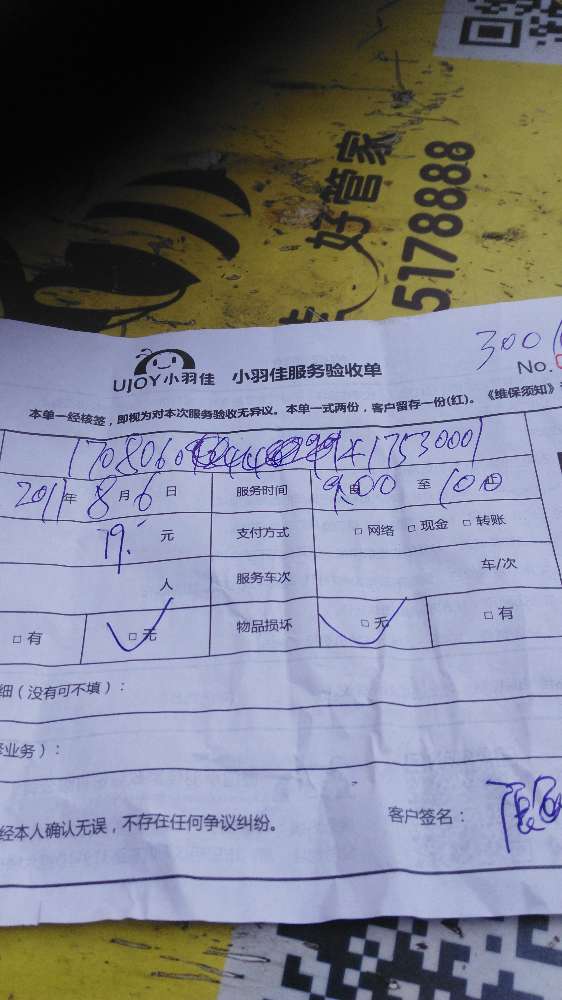 好管家
5178888
UJOY小羽佳 小羽佳服务验收单
300
No.
本单一经核签，即视为对本次服务验收无异议。本单一式两份，客户留存一份(红)。《维保须知》
2011年8月6日 服务时间 9:00 至 100
79. 元 支付方式 □ 网络 □ 现金 □ 转账
人 服务车次 车/次
□ 有 □ 无 物品损坏 □ 无 □ 有
细（没有可不填）：
业务）：
经本人确认无误，不存在任何争议纠纷。 客户签名：